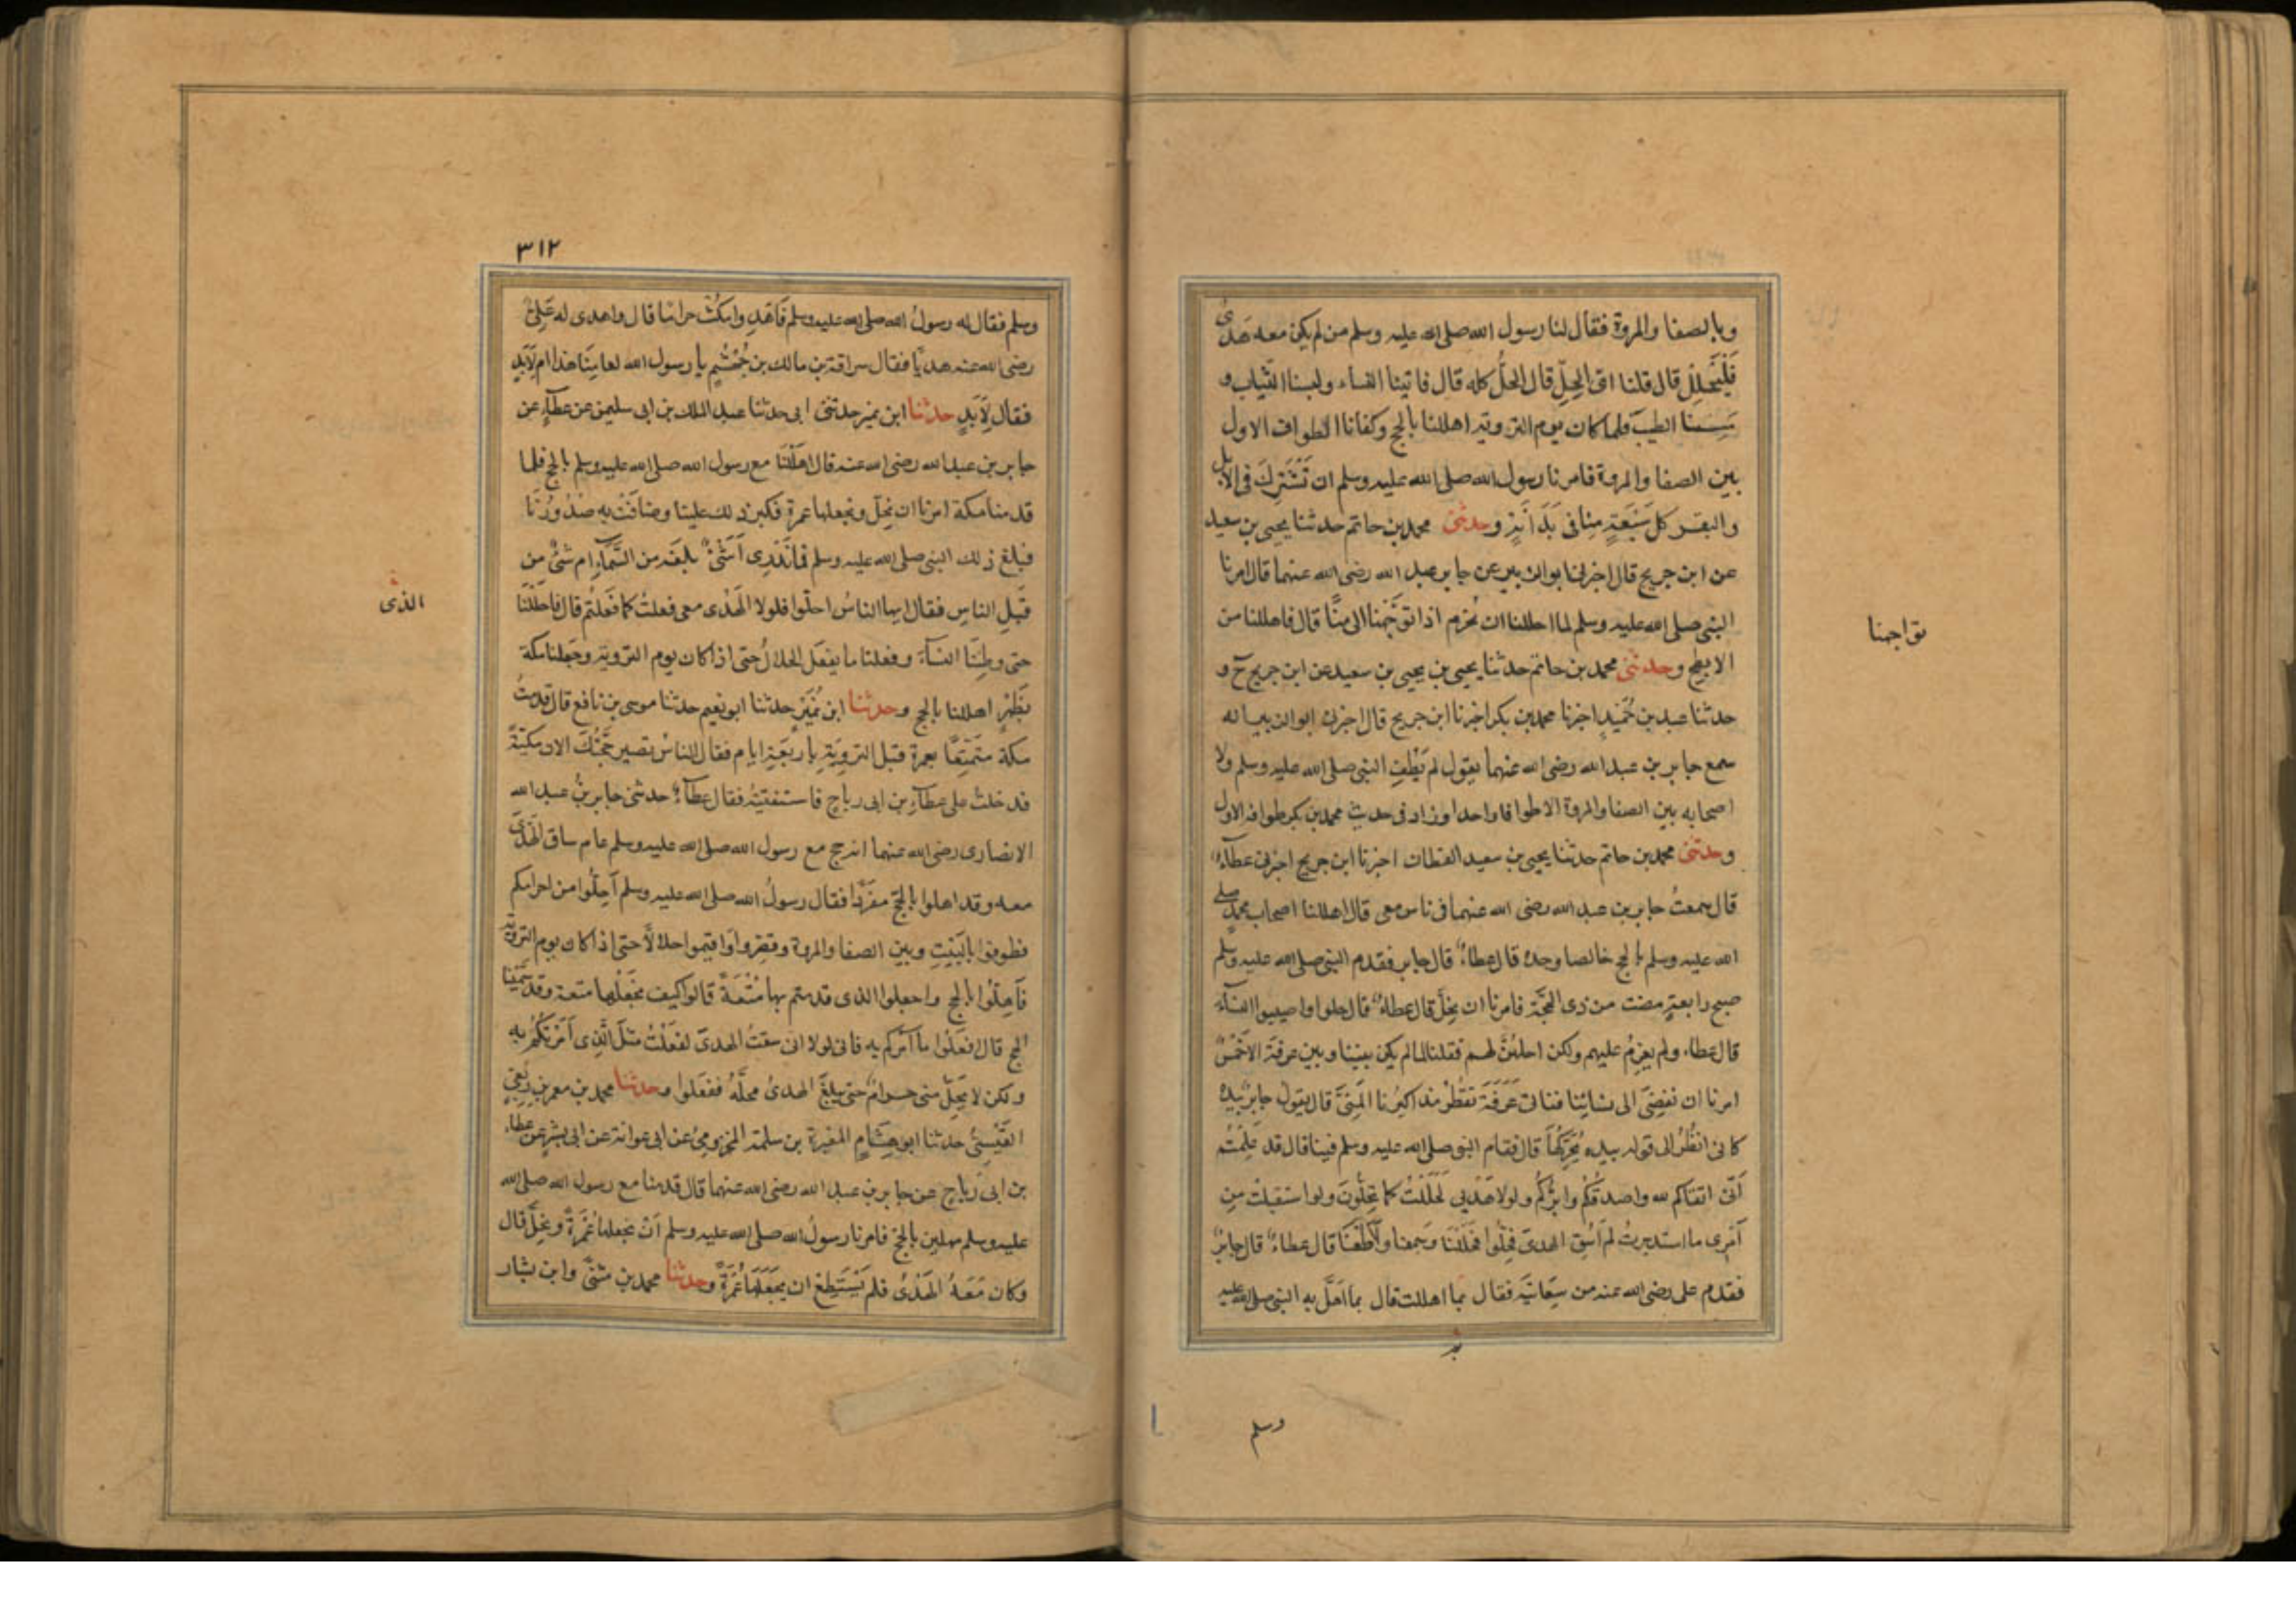 وبالصفا والمروة فقال لنا رسول الله صلى الله عليه وسلم من لم يكن معه هدى
فَلْيَحْلِلْ قال قلنا اى الحِلّ قال الحلُّ كله قال فاتينا النساء ولبسنا الثياب و
مَسِسنا الطيبَ فلما كان يوم التروية اهللنا بالحج وكفانا الطواف الاول
بين الصفا والمروة فامرنا رسول الله صلى الله عليه وسلم ان نَشْتَرِكَ فى الابل
والبقر كل سَبْعَةٍ مِنا فى بَدَنَةٍ وحدثنى محمد بن حاتم حدثنا يحيى بن سعيد
عن ابن جريج قال اخبرنى ابو الزبير عن جابر عبد الله رضى الله عنهما قال امرنا
النبى صلى الله عليه وسلم لما احللنا ان نُحْرِم اذا توَجَّهْنا الى مِنًا قال فاهللنا من
الابطح وحدثنى محمد بن حاتم حدثنا يحيى بن يحيى بن سعيد عن ابن جريج ح و
حدثنا عبد بن حُمَيدٍ اخبرنا محمد بن بكر اخبرنا ابن جريج قال اخبرنى ابو الزبير انه
سمع جابر بن عبد الله رضى الله عنهما يقول لم يَطُفِ النبى صلى الله عليه وسلم ولا
اصحابه بين الصفا والمروة الا طوافا واحدا وزاد فى حديث محمد بن بكر طوافه الاول
وحدثنى محمد بن حاتم حدثنا يحيى بن سعيد القطان اخبرنا ابن جريج اخبرنى عطاءٌ
قال سمعتُ جابر بن عبد الله رضى الله عنهما فى ناس معى قال اهللنا اصحاب محمدٍ صلى
الله عليه وسلم بالحج خالصا وحده قال عطاءٌ قال جابر فقدم النبى صلى الله عليه وسلم
صبح رابعةٍ مضت من ذى الحجَّة فامرنا ان نحِلَّ قال عطاءٌ قال حلوا واصيبوا النسآءَ
قال عطاء ولم يعزِمْ عليهم ولكن احلهُنَّ لهم فقلنا لما لم يكن بيننا وبين عرفةَ الا خمْسٌ
امرنا ان نفضِىَ الى نسائِنا فناتى عَرَفَةَ تقطُرْ مذاكيرُنا المَنِىَّ قال يقول جابرٌ بيده
كانى انظُرُ الى قوله بيده يُحَرِّكُهَا قال فقام النبى صلى الله عليه وسلم فينا قال قد عَلِمْتُم
اَنّى اتقاكم لله واصدقكُمْ وابرُّكُم ولولا هَدْيى لَحَلَلْتُ كما تَحِلُّونَ ولو استقبلتُ مِن
اَمْرى ما استدبرتُ لم اَسُقِ الهدىَ فحِلُّوا فحلَلْنا وسَمِعنا وَاَطَعْنَا قال عطاءٌ قال جابرٌ
فقدم على رضى الله عنه من سِعَايَتِه فقال بما اهللت قال بما اَهَلَّ به النبى صلى الله عليه
تواجهنا
وسلم
٣١٢
وسلم فقال له رسولُ الله صلى الله عليه وسلم فَاَهْدِ وامكُثْ حراما قال واهدى له عَلِىٌّ
رضى الله عنه هديًا فقال سراقة بن مالك بن جُعْشُمٍ يا رسول الله لعامِنَا هذا ام لِاَبَدٍ
فقال لِاَبَدٍ حدثنا ابن نمير حدثنى ابى حدثنا عبد الملك بن ابى سليمن عن عطآءٍ عن
جابر بن عبد الله رضى الله عنه قال اهلَلْنا مع رسول الله صلى الله عليه وسلم بالحج فلما
قدمنا مكة امرنا ان نحِلّ ونجعلها عمرة فكبر ذلك علينا وضاقَتْ به صُدُورُنَا
فبلغ ذلك النبى صلى الله عليه وسلم فما نَدْرِى اَشَىْءٌ بلغه من السَّمآءِ ام شىْءٌ من
قِبَلِ الناسِ فقال ايها الناسُ احلّوا فلولا الهَدْى معى فعلتُ كما فَعَلتُم قال فاحلَلْنا
حتى وطِئنا النسآءَ وفعلنا ما يفعَل الحلالُ حتى اذا كان يوم التروية وجَعلنا مكة
بظَهْرٍ اهللنا بالحج وحدثنا ابن نُمَيْرٍ حدثنا ابو نعيم حدثنا موسى بن نافع قال قدمتُ
مكة متَمَتِّعًا بعمرة قبل الترويَةِ باربَعَةِ ايام فقال الناسُ تصير حَجَّتُكَ الان مكيَّةً
فدخلتُ على عطآءِ بن ابى رباح فاستفتيتُهُ فقال عطآءٌ حدثنى جابر بنُ عبد الله
الانصارى رضى الله عنهما انه حج مع رسول الله صلى الله عليه وسلم عام ساق الهَدْىَ
معه وقد اهلوا بالحجّ مفرَدًا فقال رسولُ الله صلى الله عليه وسلم اَحِلّوا من احرامكم
فطوفوا بالبَيْتِ وبين الصفا والمروة وقصِّروا وَاَقيموا حلالًا حتى اذا كان يوم التروية
فَاَهِلّوا بالحج واجعلوا الذى قدمتم بها مُتْعَةً قالوا كيف نجَعَلُها متعة وقد سَمَّيْنا
الحج قال افعَلُوا ما آمركم به فانى لولا انى سقتُ الهدىَ لفعَلْتُ مثلَ الَّذِى اَمَرْتكُمْ به
ولكن لا يَحِلّ منى حرامٌ حتى يبلغَ الهدىُ محلَّهُ ففعَلوا وحدثنا محمد بن معمر بن رِبْعِىٍّ
القَيْسِىُّ حدثنا ابو هِشَامٍ المغيرة بن سلمة المخزومىُّ عن ابى عوانة عن ابى بشرٍ عن عطاء
بن ابى رَبَاحٍ عن جابر بن عبد الله رضى الله عنهما قال قدمنا مع رسول الله صلى الله
عليه وسلم مهلين بالحجّ فامرنا رسولُ الله صلى الله عليه وسلم اَنْ نجعلها عُمْرَةً ونحِلَّ قال
وكان مَعَهُ الهَدْىُ فلم يَسْتَطِعْ ان يجعَلَها عُمْرَةً وحدثنا محمد بن مثنىًّ وابن بشار
الذى